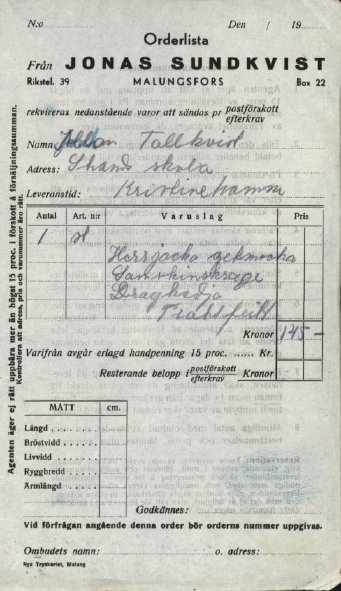 N:o Den / 19
Orderlista
Från JONAS SUNDKVIST
Rikstel. 39 MALUNGSFORS Box 22
rekvireras nedanstående varor att sändas pr postförskott
efterkrav
Namn: Tallkvist
Adress: Strands skola
Leveranstid: Kristinehamn
Antal Art. nr Varuslag Pris
1 st
Herrjacka
Lamskinskrage
Dragkedja
Fraktfritt
Kronor 145-
Varifrån avgår erlagd handpenning 15 proc. ...... Kr.
Resterande belopp i postförskott
efterkrav Kronor
MÅTT cm.
Längd
Bröstvidd
Livvidd
Ryggbredd
Ärmlängd
Godkännes:
Vid förfrågan angående denna order bör orderns nummer uppgivas.
Ombudets namn: o. adress:
Nya Tryckeriet, Malung
Agenten äger ej rätt uppbära mer än högst 15 proc. i förskott å försäljningssumman.
Kontrollera att adress, pris och varunummer äro rätt.